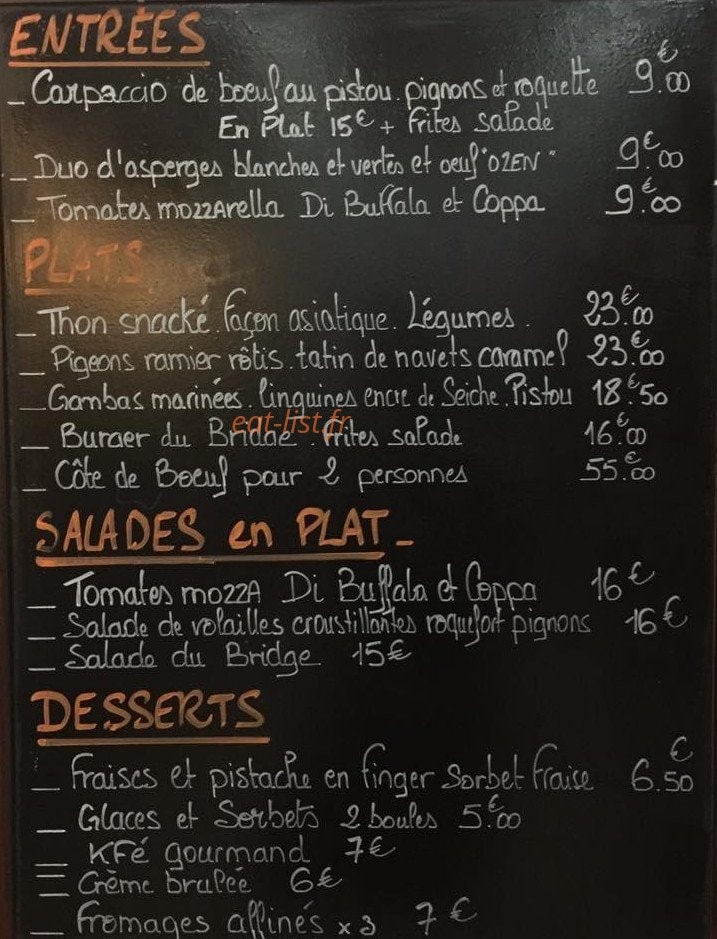 ENTRÉES
_ Carpaccio de boeuf au pistou. pignons et roquette 9.€00
En Plat 15€ + frites salade
_ Duo d'asperges blanches et vertes et oeuf "OZEN" 9.€00
_ Tomates mozzarella Di Buffala et Coppa 9.€00
PLATS
_ Thon snacké. façon asiatique. Légumes. 23.€00
_ Pigeons ramier rôtis. tatin de navets caramel 23.€00
_ Gambas marinées. linguines encre de Seiche. Pistou 18.€50
eat-list.fr
_ Burger du Bridge. frites salade 16.€00
_ Côte de Boeuf pour 2 personnes 55.€00
SALADES en PLAT _
_ Tomates mozzA Di Buffala et Coppa 16€
_ Salade de volailles croustillantes roquefort pignons 16€
_ Salade du Bridge 15€
DESSERTS
_ fraises et pistache en finger Sorbet fraise 6.€50
_ Glaces et Sorbets 2 boules 5.€00
_ KFé gourmand 7€
_ Crème brulée 6€
_ fromages affinés x3 7€